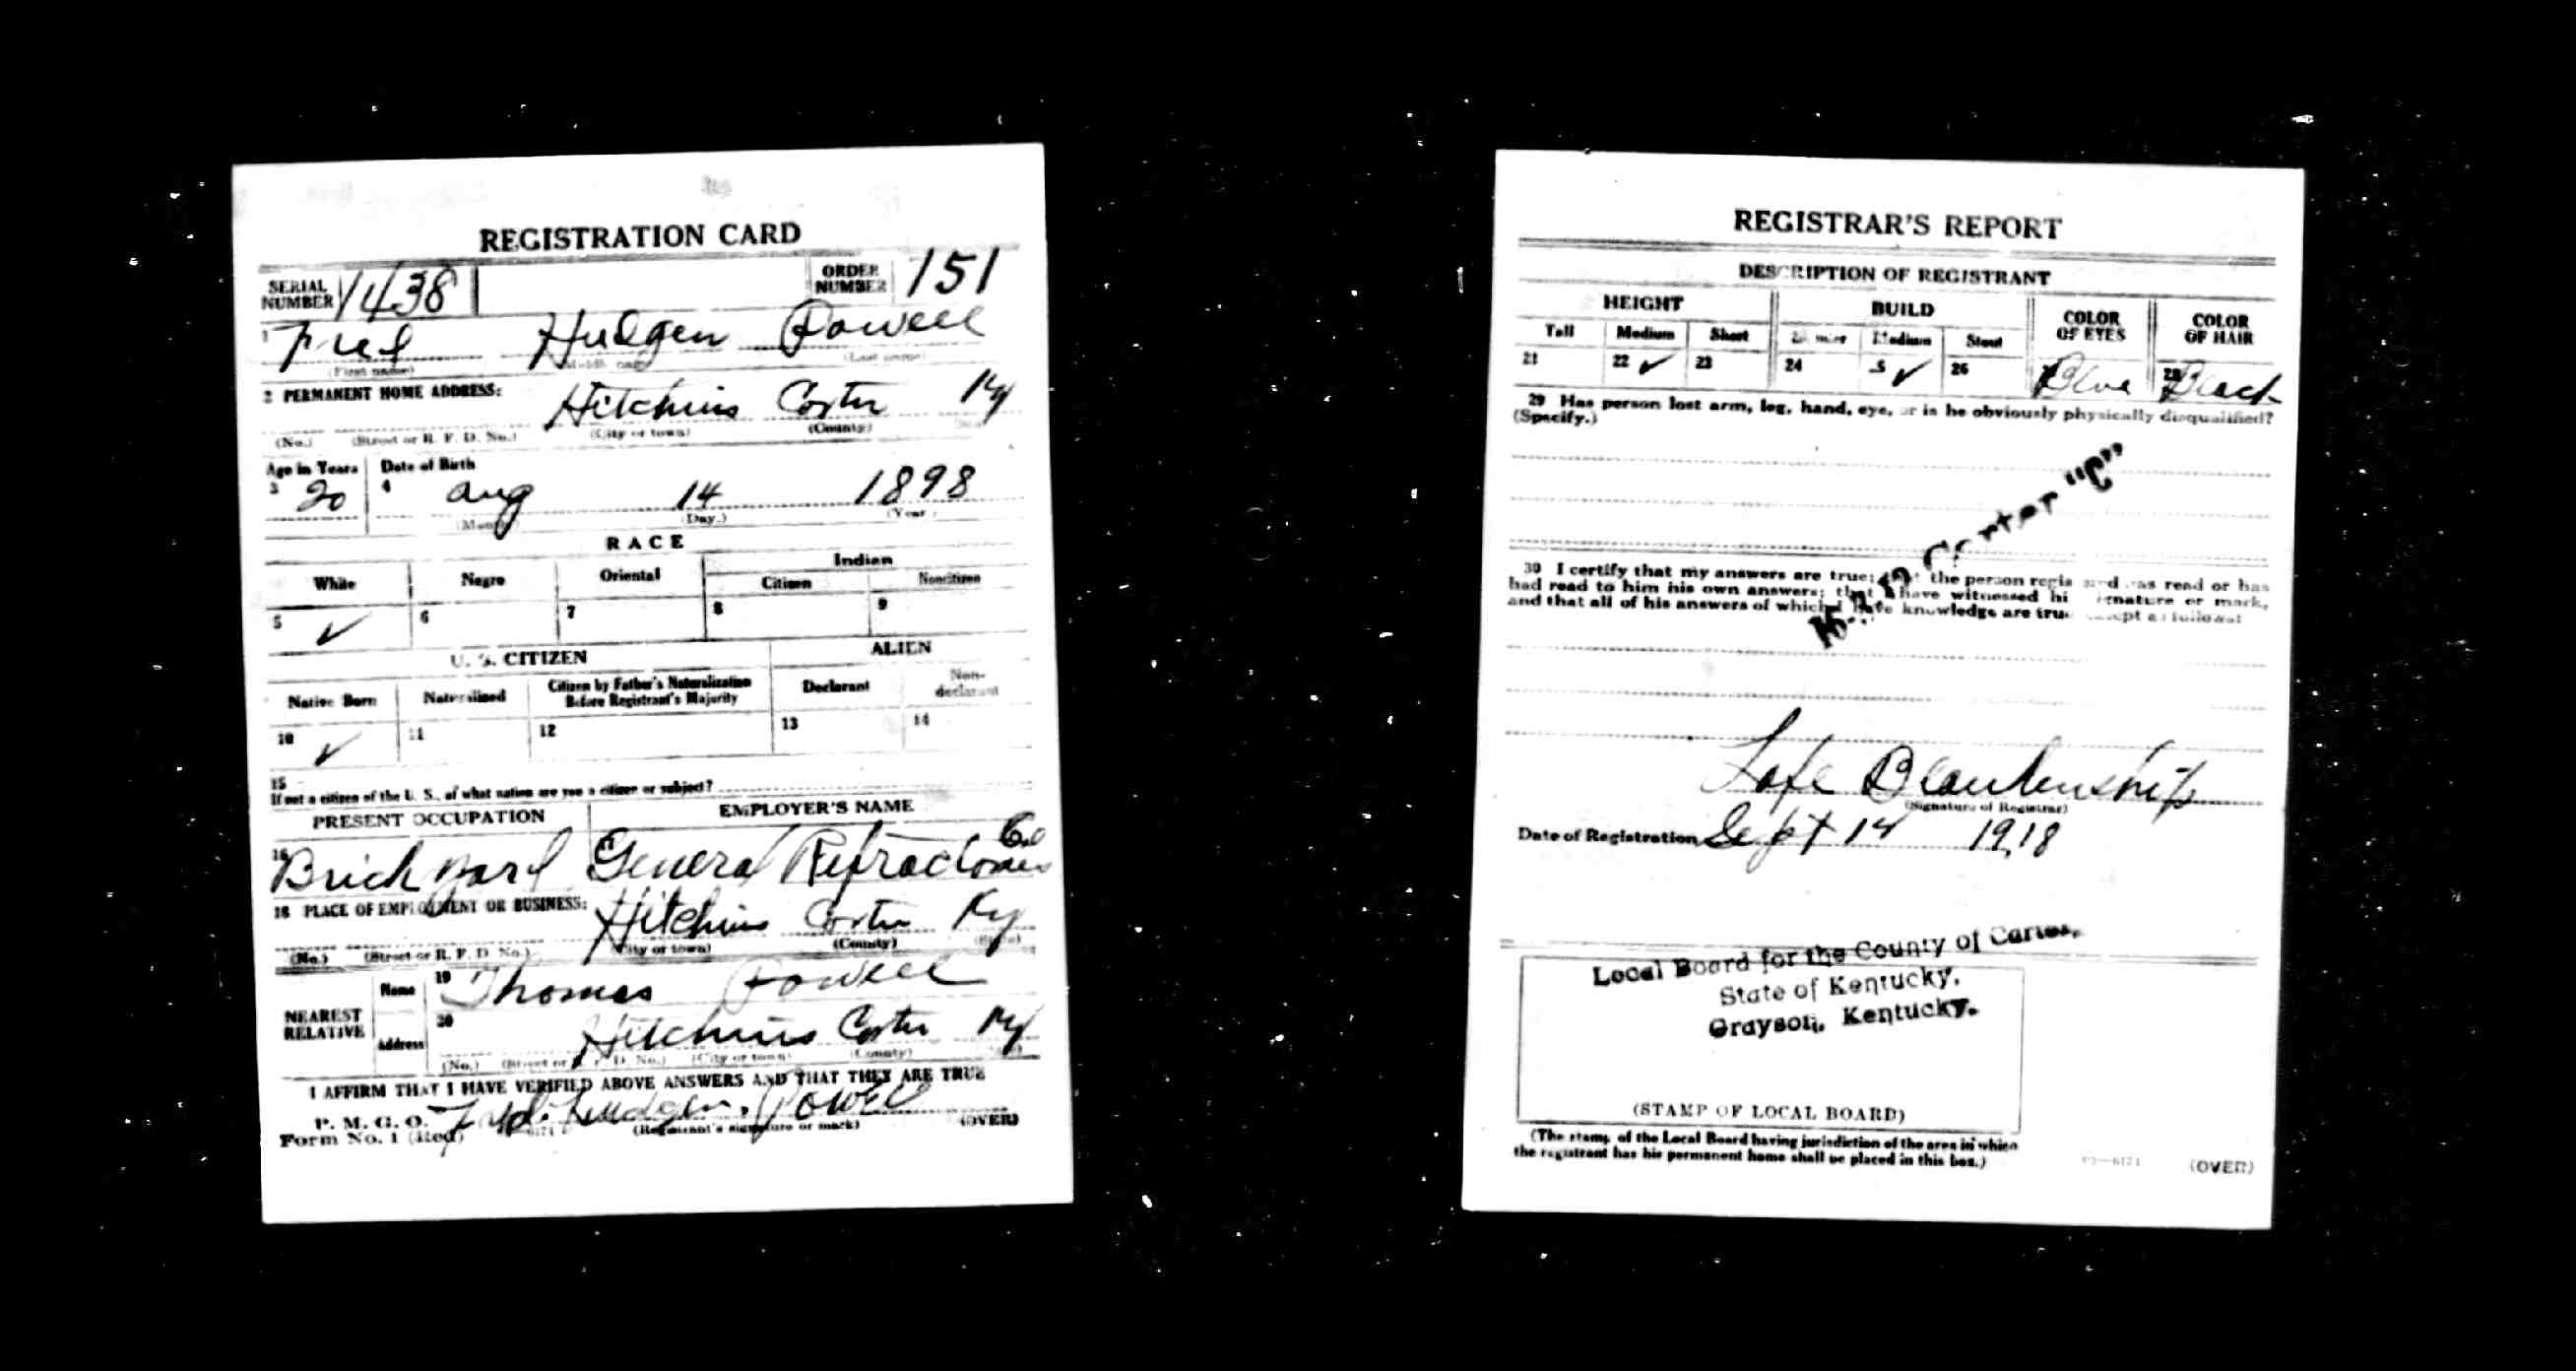 REGISTRATION CARD
SERIAL NUMBER 1438 ORDER NUMBER 151
1 Fred Hudgen Powell
(First name) (Middle name) (Last name)
2 PERMANENT HOME ADDRESS:
Hitchins Carter Ky
(No.) (Street or R. F. D. No.) (City or town) (County)
Age in Years Date of Birth
3 20 4 Aug 14 1898
(Month) (Day.) (Year)
RACE
White Negro Oriental Indian
Citizen Noncitizen
5 ✓ 6 7 8 9
U. S. CITIZEN ALIEN
Native Born Naturalized Citizen by Father's Naturalization Before Registrant's Majority Declarant Non-declarant
10 ✓ 11 12 13 14
15
If not a citizen of the U. S., of what nation are you a citizen or subject?
PRESENT OCCUPATION EMPLOYER'S NAME
16 Brick yard General Refractories Co
18 PLACE OF EMPLOYMENT OR BUSINESS:
Hitchins Carter Ky
(No.) (Street or R. F. D. No.) (City or town) (County) (State)
NEAREST RELATIVE
Name 19 Thomas Powell
Address 20 Hitchins Carter Ky
(No.) (Street or R. F. D. No.) (City or town) (County)
I AFFIRM THAT I HAVE VERIFIED ABOVE ANSWERS AND THAT THEY ARE TRUE
P. M. G. O.
Form No. 1 (Red) Hudgen Powell
(Registrant's signature or mark) (OVER)
REGISTRAR'S REPORT
DESCRIPTION OF REGISTRANT
HEIGHT BUILD COLOR OF EYES COLOR OF HAIR
Tall Medium Short Slender Medium Stout
21 22 ✓ 23 24 25 ✓ 26 Blue 28 Black
29 Has person lost arm, leg, hand, eye, or is he obviously physically disqualified?
(Specify.)
Carter "C"
30 I certify that my answers are true; that the person registered has read or has
had read to him his own answers; that I have witnessed his signature or mark,
and that all of his answers of which I have knowledge are true, except as follows:
Lafe Blankenship
(Signature of Registrar)
Date of Registration Sept 14 1918
Local Board for the County of Carter,
State of Kentucky,
Grayson, Kentucky.
(STAMP OF LOCAL BOARD)
(The stamp of the Local Board having jurisdiction of the area in which
the registrant has his permanent home shall be placed in this box.)
(OVER)